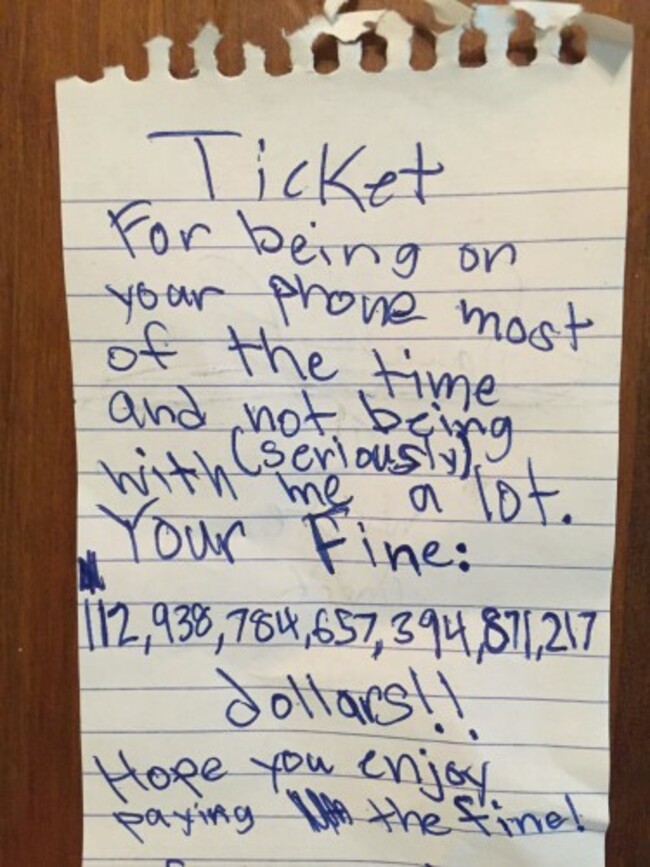 Ticket
For being on
your phone most
of the time
and not being
(seriously)
with me a lot.
Your Fine:
112,938,784,657,394,871,217
dollars!!
Hope you enjoy
paying the fine!